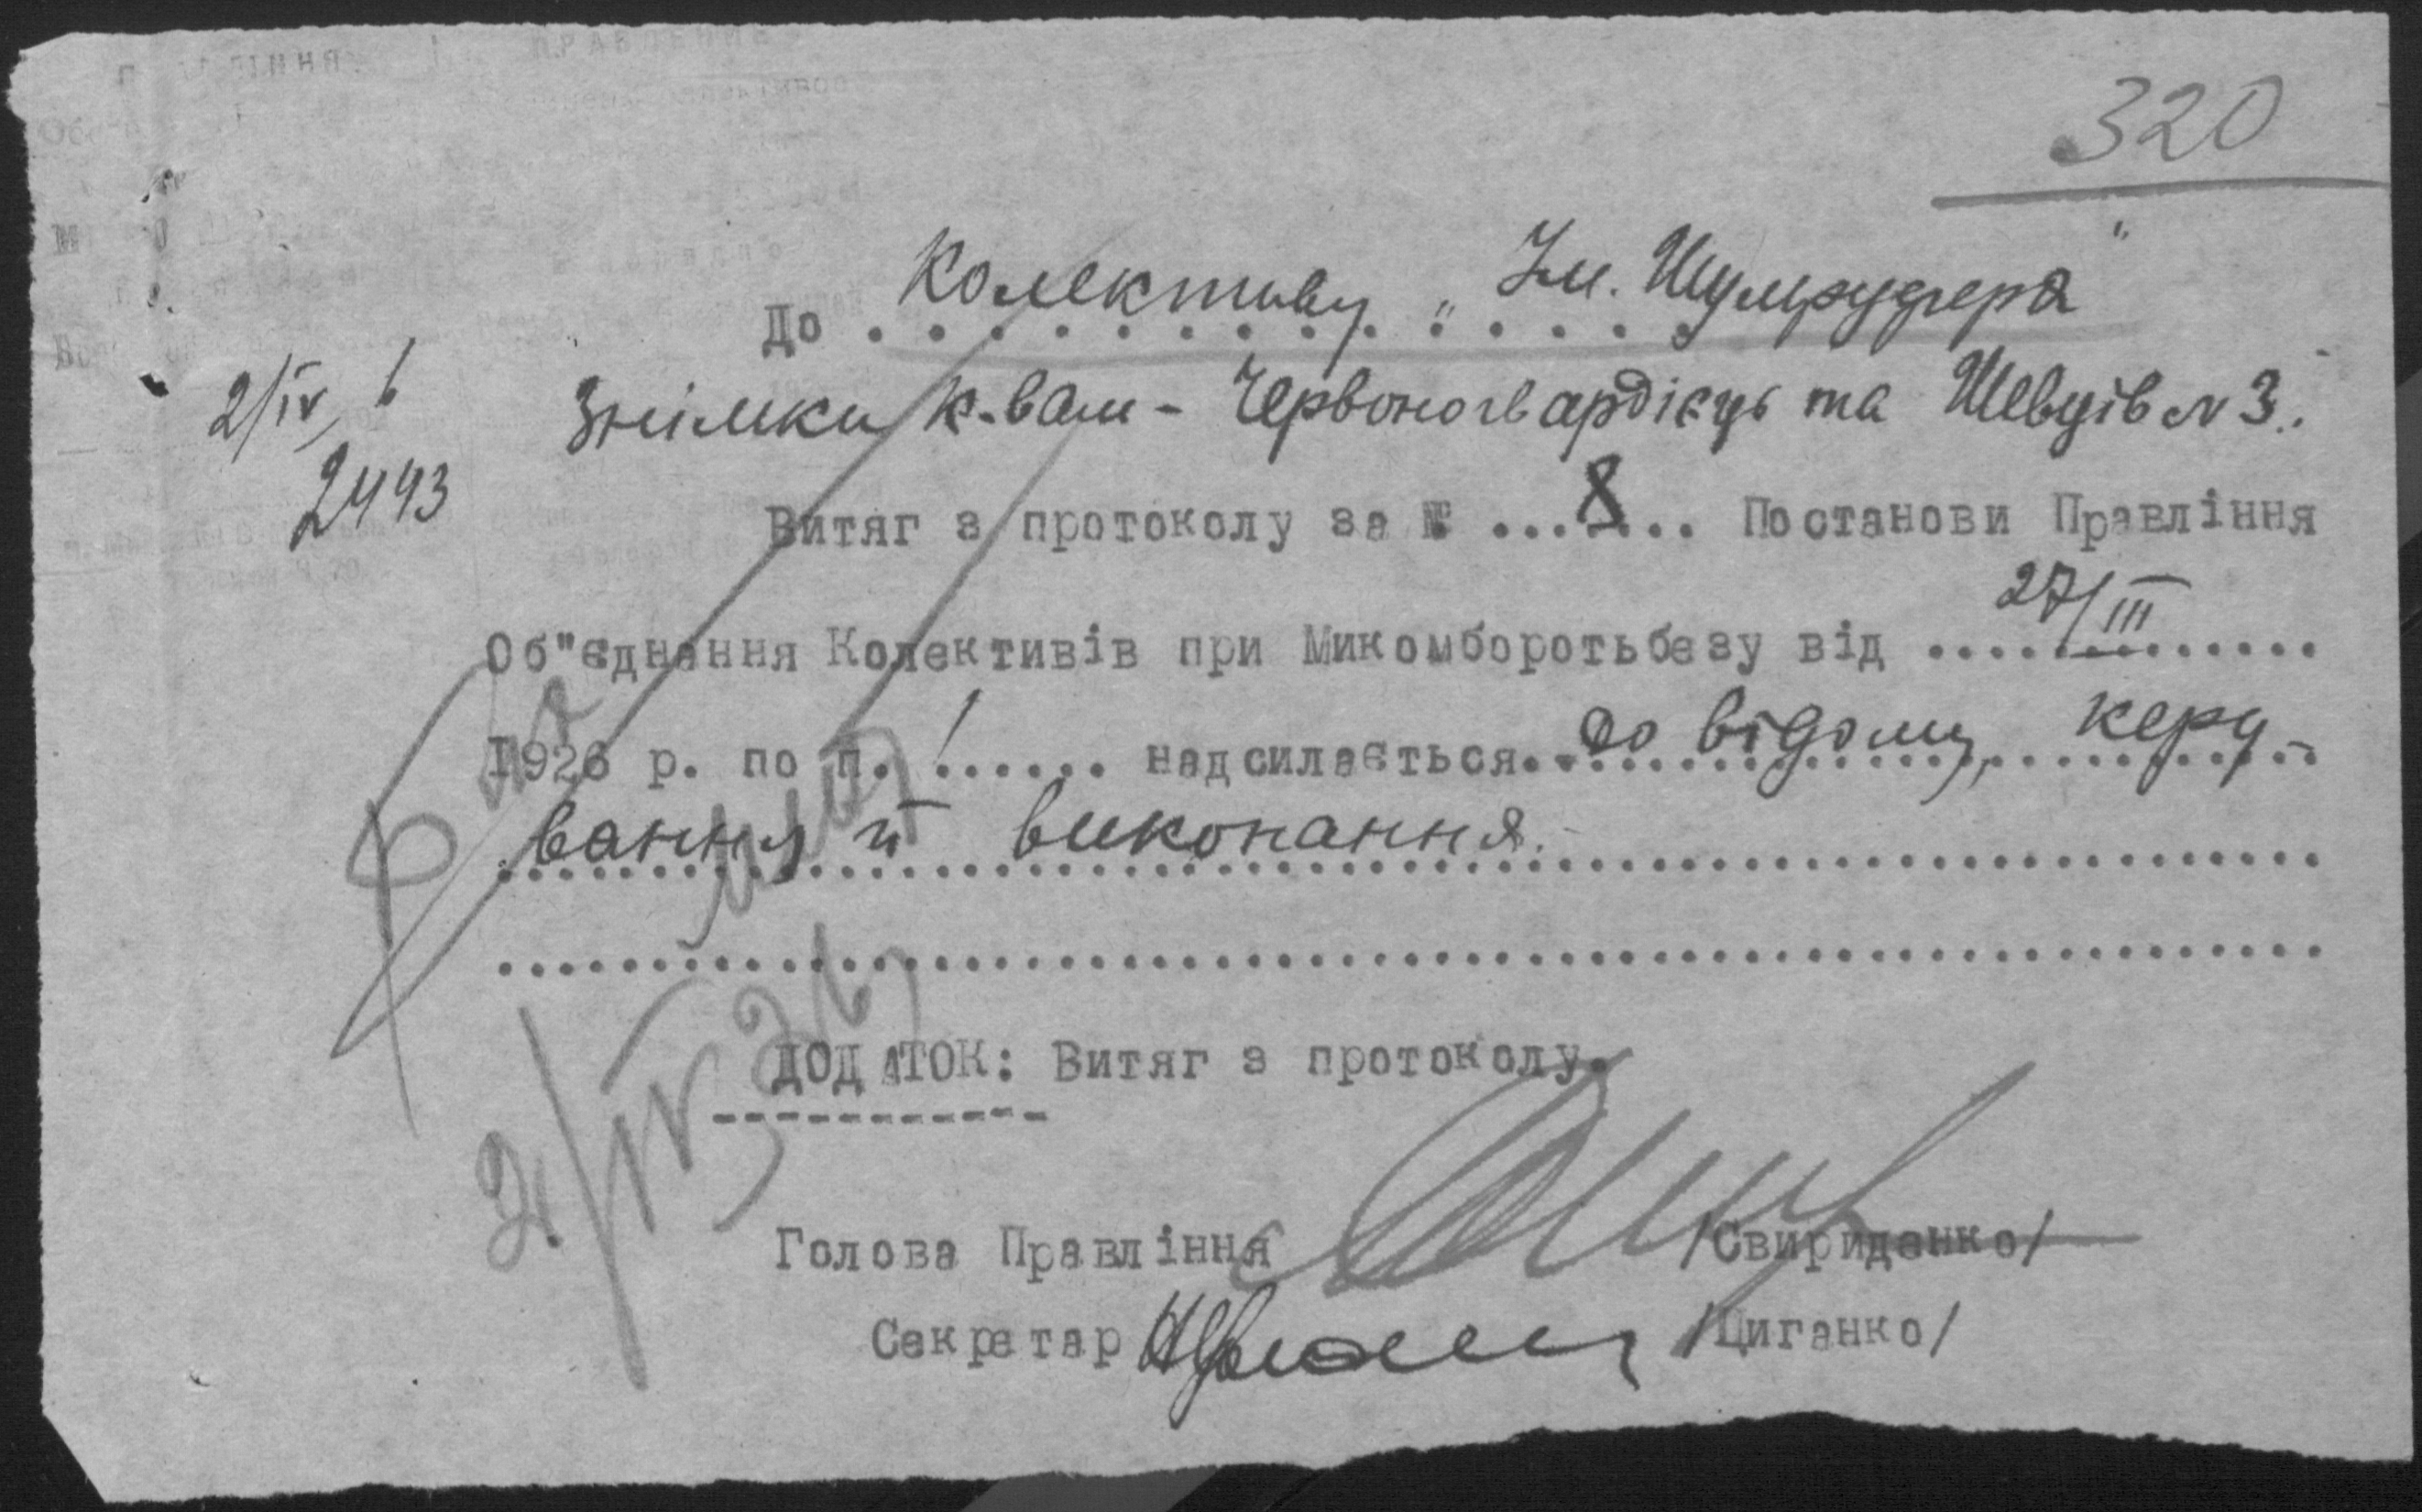 320
До Колективу „Ім. Шумрудгера"
2/IV
Знімки к-вам - Червоногвардієць та Шевців N 3.
2493
Витяг з протоколу за № ...8... Постанови Правління
27/III
Об"єднання Колективів при Микомборотьбезу від .............
1926 р. по п. 1...... надсилається.. до відому, керу-
вання й виконання.
ДОДАТОК: Витяг з протоколу.
Голова Правління /Свириденко/
Секретар /Циганко/